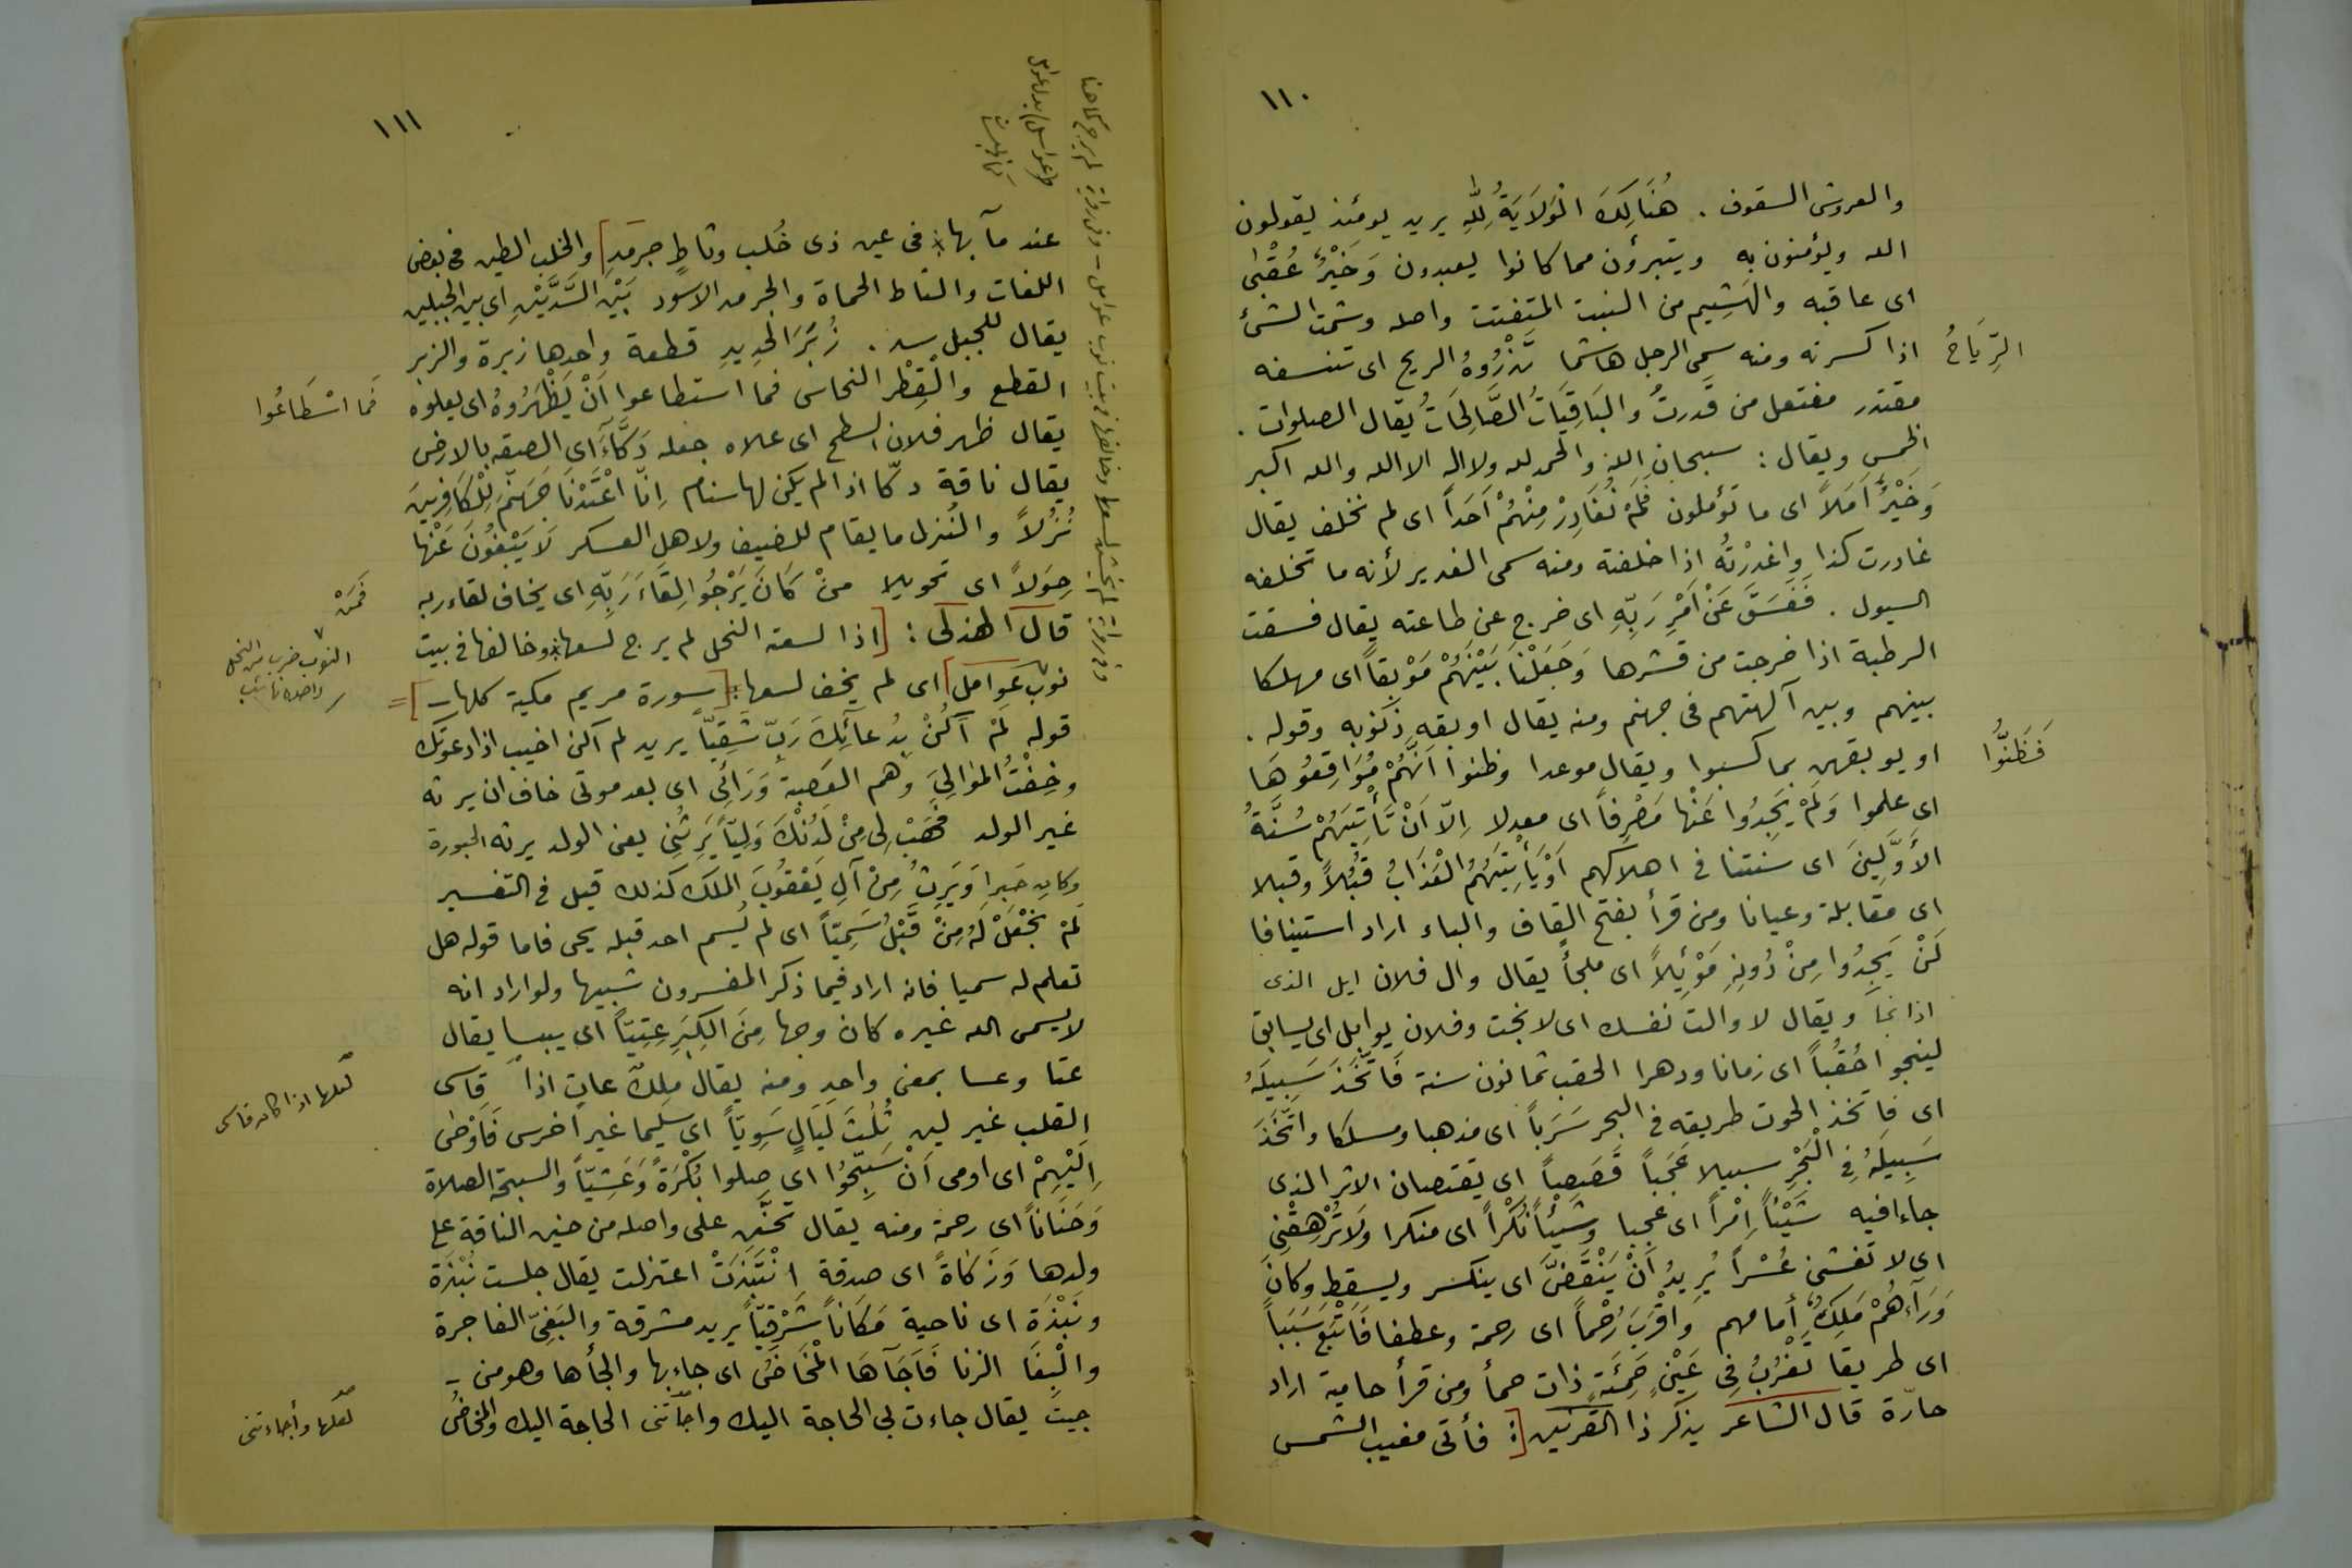 ١١٠
والعروش السقوف . هُنَالِكَ الْوَلَايَةُ لِلّٰهِ يريد يومئذ يقولون
الله ويؤمنون به ويتبرؤن مما كانوا يعبدون وَخَيْرٌ عُقْبٰى
اى عاقبه والهَشِيم من النبت المتفتت واصله وشمت الشئ
اذا كسرته ومنه سمى الرجل هاشما تَذْرُوهُ الريح اى تنسفه
الرِّيَاحُ
مقتدر مفتعل من قدرتُ والبَاقِيَاتُ الصَّالِحَاتُ يقال الصلوات .
الخمس ويقال : سبحان الله والحمد لله ولا اله الا الله والله اكبر
وَخَيْرٌ اَمَلاً اى ما تؤملون فَلَمْ نُغَادِرْ مِنْهُمْ اَحَداً اى لم نخلف يقال
غادرت كذا واغدرْتُه اذا خلفته ومنه سمى الغدير لأنه ما تخلفه
السيول . فَفَسَقَ عَنْ اَمْرِ رَبِّهِ اى خرج عن طاعته يقال فسقت
الرطبة اذا خرجت من قشرها وَجَعَلْنَا بَيْنَهُمْ مَوْبِقاً اى مهلكا
بينهم وبين آلهتهم فى جهنم ومنه يقال اوبقه ذنوبه وقوله .
او يوبقهن بما كسبوا ويقال موعدا وظنوا اَنَّهُمْ مُوَاقِعُوهَا
فَظَنُّوا
اى علموا وَلَمْ يَجِدُوا عَنْها مَصْرِفاً اى معدلا اِلَّا اَنْ تَأْتِيَهُمْ سُنَّةُ
الأَوَّلِينَ اى سنتنا فى اهلاكهم اَوْ يَأْتِيَهُمُ الْعَذَابُ قُبُلاً وقبلا
اى مقابلة وعيانا ومن قرأ بفتح القاف والباء اراد استينافا
لَنْ يَجِدُوا مِنْ دُونِهِ مَوْئِلاً اى ملجأ يقال وال فلان ايل الذى
اذا نجا ويقال لا والت نفسك اى لا نجت وفلان يوايل اى يسابق
لينجو احُقُباً اى زمانا ودهرا الحقب ثمانون سنة فَاتَّخَذَ سَبِيلَهُ
اى فاتخذ الحوت طريقه فى البحر سَرَباً اى مذهبا ومسلكا واتَّخَذَ
سَبِيلَهُ فِى الْبَحْرِ سبيلا عَجَباً قَصَصاً اى يقتصان الاثر الذى
جاءا فيه شَيْئاً اِمْراً اى عجبا وشَيْئاً نُكْراً اى منكرا وَلَا تُرْهِقْنِى
اى لا تغشنى عُسْراً يُرِيدُ اَنْ يَنْقَضَّ اى ينكسر ويسقط وكانَ
وَرَاءَهُمْ مَلِكٌ أمامهم وَاَقْرَبَ رُحْماً اى رحمة وعطفا فَاَتْبَعَ سَبَباً
اى طريقا تَغْرُبُ فِى عَيْنٍ حَمِئَةٍ ذات حمأ ومن قرأ حامية اراد
حارّة قال الشاعر يذكر ذا القرنين [: فأتى مغيب الشمس
١١١
وفى رواية لم يخش لسعها وخالفها فى بيت نوب عوامل - وفى رواية لم يرج كما هنا
عند مآبها * فى عين ذى خُلب وثاطٍ حرمدِ] والخلب الطين فى بعض
اللغات والثاط الحماة والحرمد الاسود بَيْنَ السَّدَّيْنِ اى بين الجبلين
يقال للجبل سد . زُبَرَ الْحَدِيدِ قطعة واحدها زبرة والزبر
القطع والْقِطْر النحاس فما استطاعوا اَنْ يَظْهَرُوهُ اى يعلوه
فَمَا اسْطَاعُوا
يقال ظهر فلان السطح اى علاه جعله دَكَّاءَ اى الصقه بالارض
يقال ناقة دكّا اذا لم يكن لها سنام اِنَّا اَعْتَدْنَا جَهَنَّمَ لِلْكَافِرِينَ
نُزُلاً والنُزل ما يقام للضيف ولاهل العسكر لَا يَبْغُونَ عَنْها
حِوَلاً اى تحويلا منْ كَانَ يَرْجُو لِقَاءَ رَبِّهِ اى يخاف لقاء ربه
فَمَنْ
قال الهذلى : [اذا لسعته النحل لم يرج لسعها * وخالفها فى بيت
النوب ضرب من النحل
واحدها نائب
نوب عَوامل] اى لم يخف لسعها : [سورة مريم مكية كلها - ] =
قوله لَمْ اَكُنْ بِدُعائِكَ رَبِّ شَقِيّاً يريد لم اكن اخيب اذا دعوتك
وخِفْتُ المَوَالِىَ وهم العَصبة وَرَائِى اى بعد موتى خاف ان يرثه
غير الولد فَهَبْ لِى مِنْ لَدُنْكَ وَلِيّاً يَرِثُنِى يعنى الولد يرثه الحبورة
وكان حَبرا وَيَرِثُ مِنْ آلِ يَعْقُوبَ الملك كذلك قيل فى التفسير
لَمْ نَجْعَلْ لَهُ مِنْ قَبْلُ سَمِيّاً اى لم يُسم احد قبله يحيى فاما قوله هل
تعلم له سميا فانه اراد فيما ذكر المفسرون شبيها ولو اراد انه
لا يسمى الله غيره كان وجها مِنَ الكِبَرِ عِتِيّاً اى يبسا يقال
عتا وعسا بمعنى واحد ومنه يقال ملِكٌ عاتٍ اذاً قاسى
لعلها اذا كان قاسى
القلب غير لين ثَلٰثَ لَيَالٍ سَوِيّاً اى سليما غير اخرس فَاَوْحٰى
اِلَيْهِمْ اى اومى اَنْ سَبِّحُوا اى صلوا بُكْرَةً وَعَشِيّاً والسبحة الصلاة
وَحَنَاناً اى رحمة ومنه يقال تحنّن على واصله من حنين الناقة على
ولدها وَزَكَاةً اى صدقة انْتَبَذَتْ اعتزلت يقال جلست نُبْذَة
ونَبْذَة اى ناحية مَكَاناً شَرْقِيّاً يريد مشرقة والبَغِىّ الفاجرة
والْبِغَا الزنا فَاَجَاءَهَا الْمَخَاضُ اى جاء بها والجأها وهو من -
جيت يقال جاءت بى الحاجة اليك واجآتنى الحاجة اليك والمخاضُ
لعلها وأجاءتنى